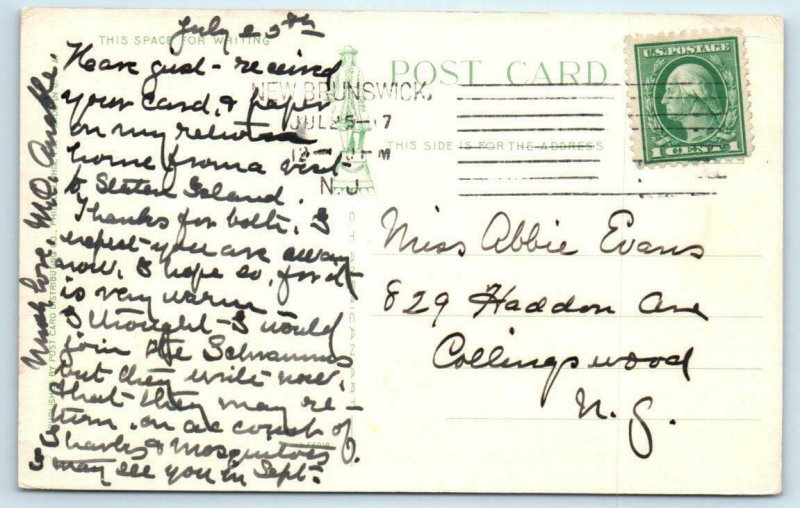 July 25th
THIS SPACE FOR WRITING
Have just received
your card, & paper
on my return
home from a visit
to Staten Island.
Thanks for both, I
expect you are away
now, I hope so, for it
is very warm
I thought I would
join the Schwamms
but they write now,
that they may re-
turn, on account of
Sharks & Mosquitoes.
So may see you in Sept.
Much love M.O.
POST CARD
THIS SIDE IS FOR THE ADDRESS
NEW BRUNSWICK,
JUL 25 17
12 M
N.J.
U.S. POSTAGE
1 CENT 1
Miss Abbie Evans
829 Haddon Ave
Collingswood
N. J.